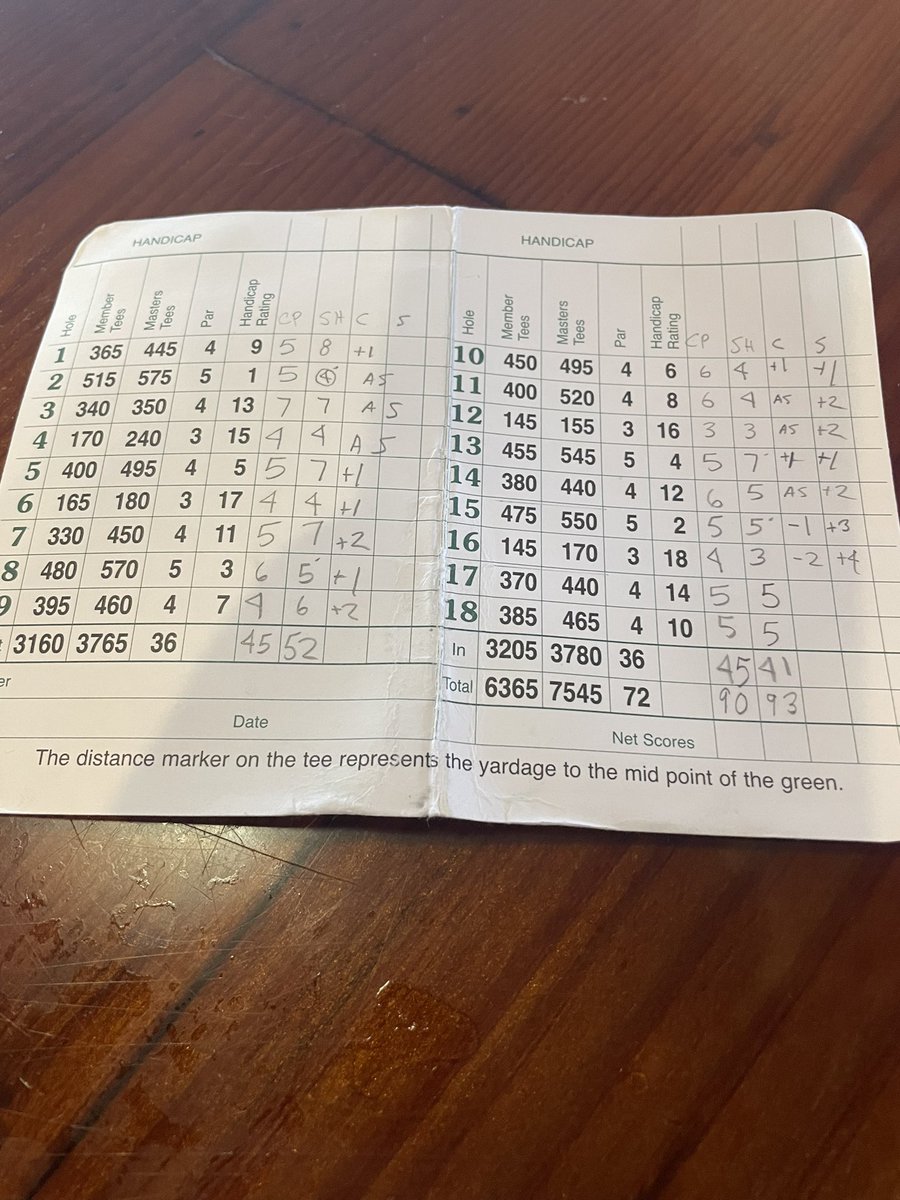 HANDICAP
Hole Member Tees Masters Tees Par Handicap Rating CP SH C S
1 365 445 4 9 5 8 +1
2 515 575 5 1 5 4 AS
3 340 350 4 13 7 7 AS
4 170 240 3 15 4 4 AS
5 400 495 4 5 5 7 +1
6 165 180 3 17 4 4 +1
7 330 450 4 11 5 7 +2
8 480 570 5 3 6 5 +1
9 395 460 4 7 4 6 +2
3160 3765 36 45 52
er
Date
HANDICAP
Hole Member Tees Masters Tees Par Handicap Rating CP SH C S
10 450 495 4 6 6 4 +1 +1
11 400 520 4 8 6 4 AS +2
12 145 155 3 16 3 3 AS +2
13 455 545 5 4 5 7 +1 +1
14 380 440 4 12 6 5 AS +2
15 475 550 5 2 5 5 -1 +3
16 145 170 3 18 4 3 -2 +4
17 370 440 4 14 5 5
18 385 465 4 10 5 5
In 3205 3780 36 45 41
Total 6365 7545 72 90 93
Net Scores
The distance marker on the tee represents the yardage to the mid point of the green.